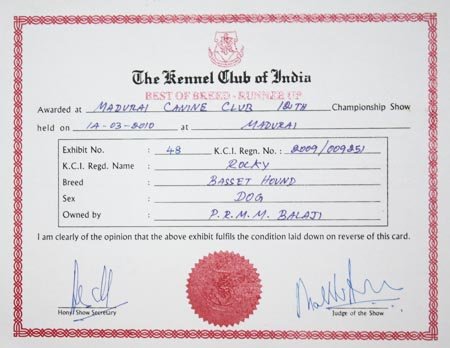 The Kennel Club of India
BEST OF BREED - RUNNER UP
Awarded at MADURAI CANINE CLUB 12TH Championship Show
held on 14-03-2010 at MADURAI
Exhibit No. : 48 K.C.I. Regn. No. : 2009/009251
K.C.I. Regd. Name : ROCKY
Breed : BASSET HOUND
Sex : DOG
Owned by : P.R.M.M. BALAJI
I am clearly of the opinion that the above exhibit fulfils the condition laid down on reverse of this card.
Hony. Show Secretary Judge of the Show